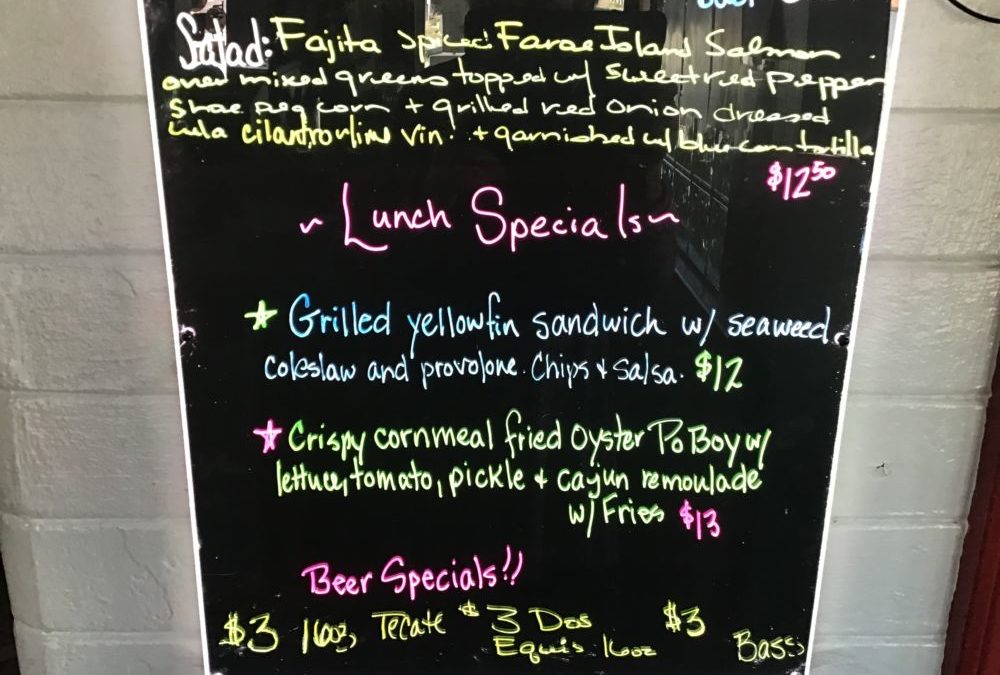 Salad: Fajita Spiced Farae Island Salmon
over mixed greens topped w/ sweet red pepper
Shoe peg corn + grilled red onion dressed
cilantro lime vin. + garnished w/ blue corn tortilla
$12.50
~ Lunch Specials ~
☆ Grilled yellowfin sandwich w/ seaweed
coleslaw and provolone. Chips + Salsa. $12
☆ Crispy cornmeal fried Oyster Po Boy w/
lettuce, tomato, pickle + cajun remoulade
w/ Fries $13
Beer Specials!!
$3 16oz. Tecate $3 Dos $3
Equis 16oz Bass